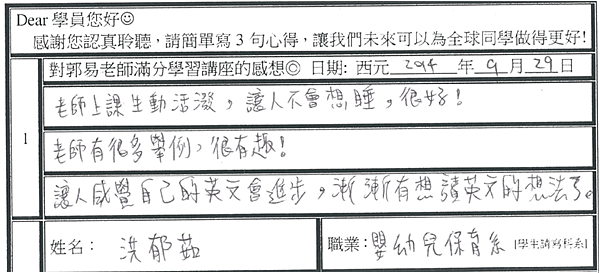 Dear 學員您好☺
感謝您認真聆聽，請簡單寫 3 句心得，讓我們未來可以為全球同學做得更好!
對郭易老師滿分學習講座的感想◎ 日期: 西元 2014 年 9 月 29 日
1
老師上課生動活潑，讓人不會想睡，很好！
老師有很多舉例，很有趣！
讓人感覺自己的英文會進步，漸漸有想讀英文的想法了。
姓名： 洪郁茹 職業： 嬰幼兒保育系 [學生請寫科系]